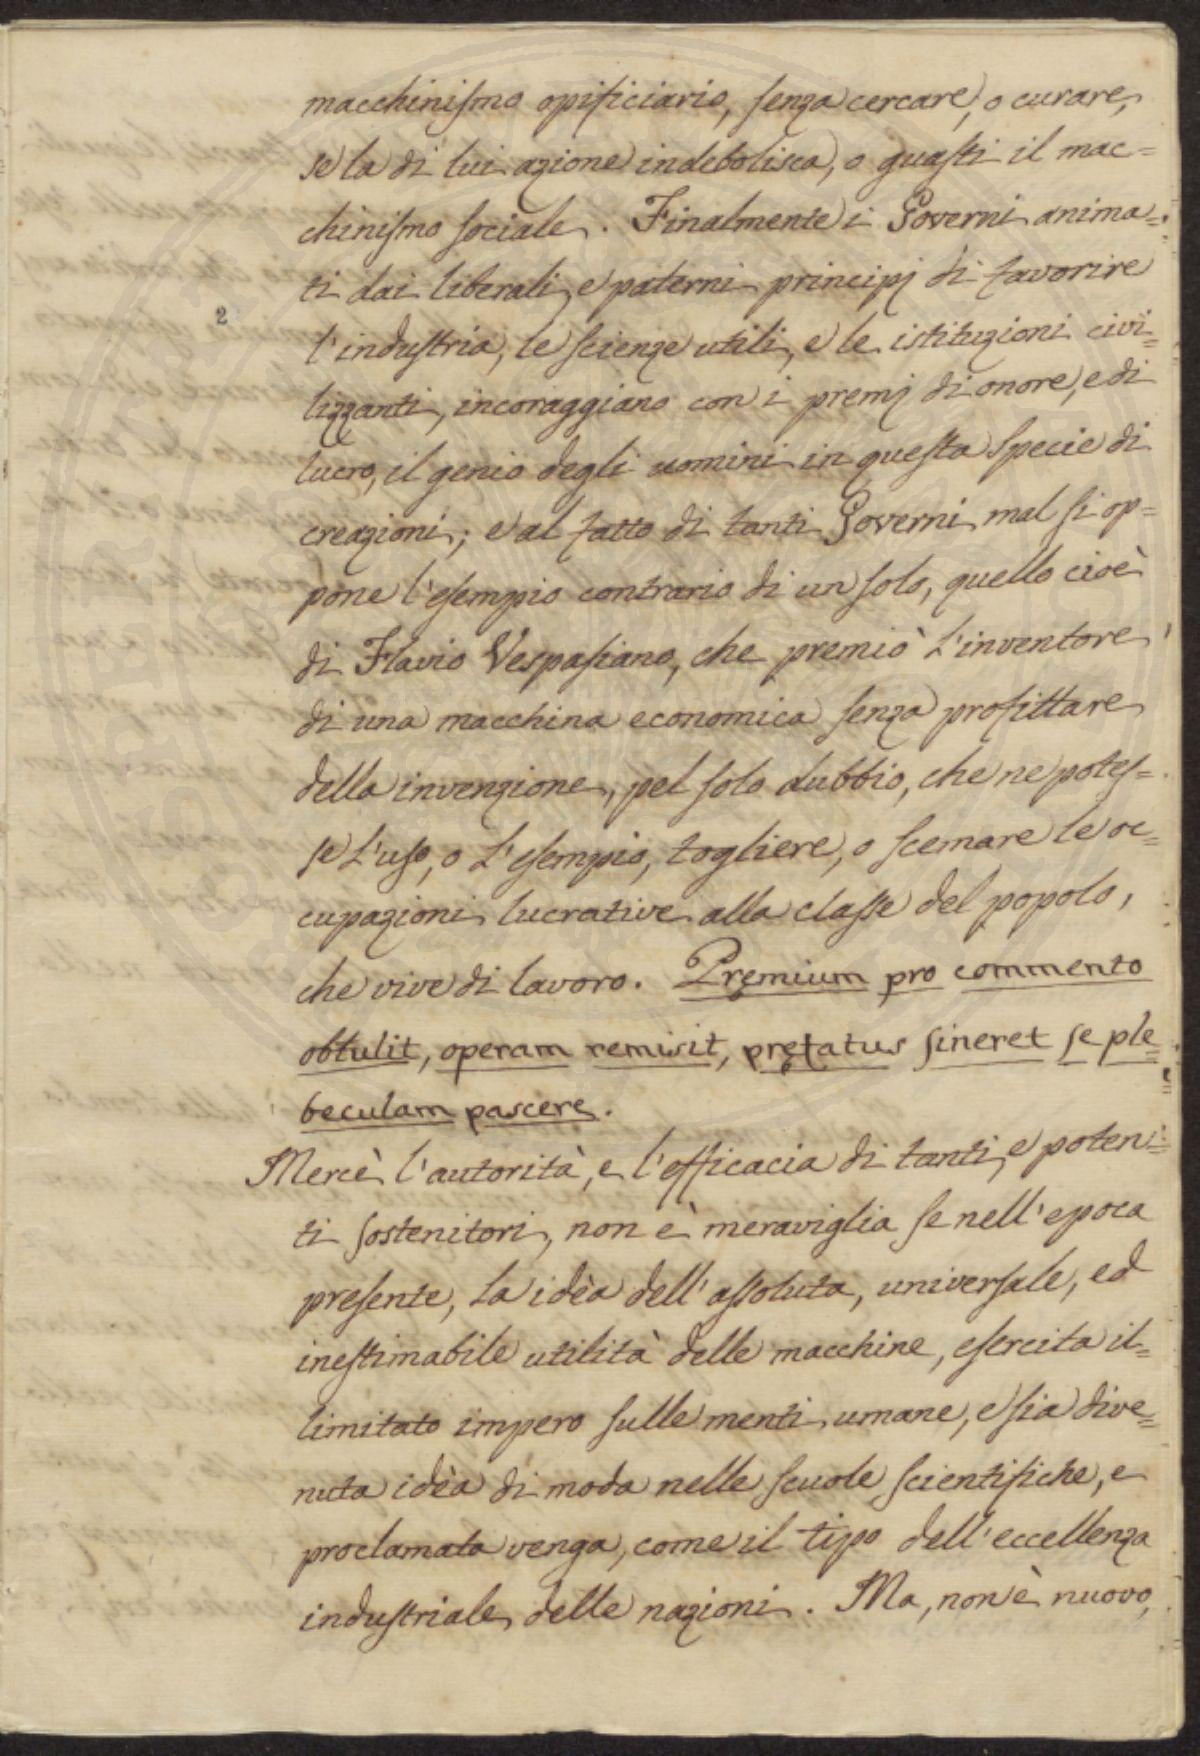 macchinismo opificiario, senza cercare, o curare,
se la di lui azione indebolisca, o guasti il mac=
chinismo sociale. Finalmente i Governi anima=
ti dai liberali, e paterni principj di favorire
2
l'industria, le scienze utili, e le istituzioni civi=
lizzanti, incoraggiano con i premj di onore, e di
lucro, il genio degli uomini in questa specie di
creazioni; e al fatto di tanti Governi mal si op=
pone l'esempio contrario di un solo, quello cioè
di Flavio Vespasiano, che premiò l'inventore
di una macchina economica senza profittare
della invenzione, pel solo dubbio, che ne potes=
se l'uso, o l'esempio, togliere, o scemare le oc=
cupazioni lucrative alla classe del popolo,
che vive di lavoro. Pręmium pro commento
obtulit, operam remisit, pręfatus sineret se ple=
beculam pascere.
Mercè l'autorità, e l'efficacia di tanti, e poten=
ti sostenitori, non è meraviglia se nell'epoca
presente, la idèa dell'assoluta, universale, ed
inestimabile utilità delle macchine, esercita il=
limitato impero sulle menti umane, e sia dive=
nuta idèa di moda nelle scuole scientifiche, e
proclamata venga, come il tipo dell'eccellenza
industriale delle nazioni. Ma, non è nuovo,